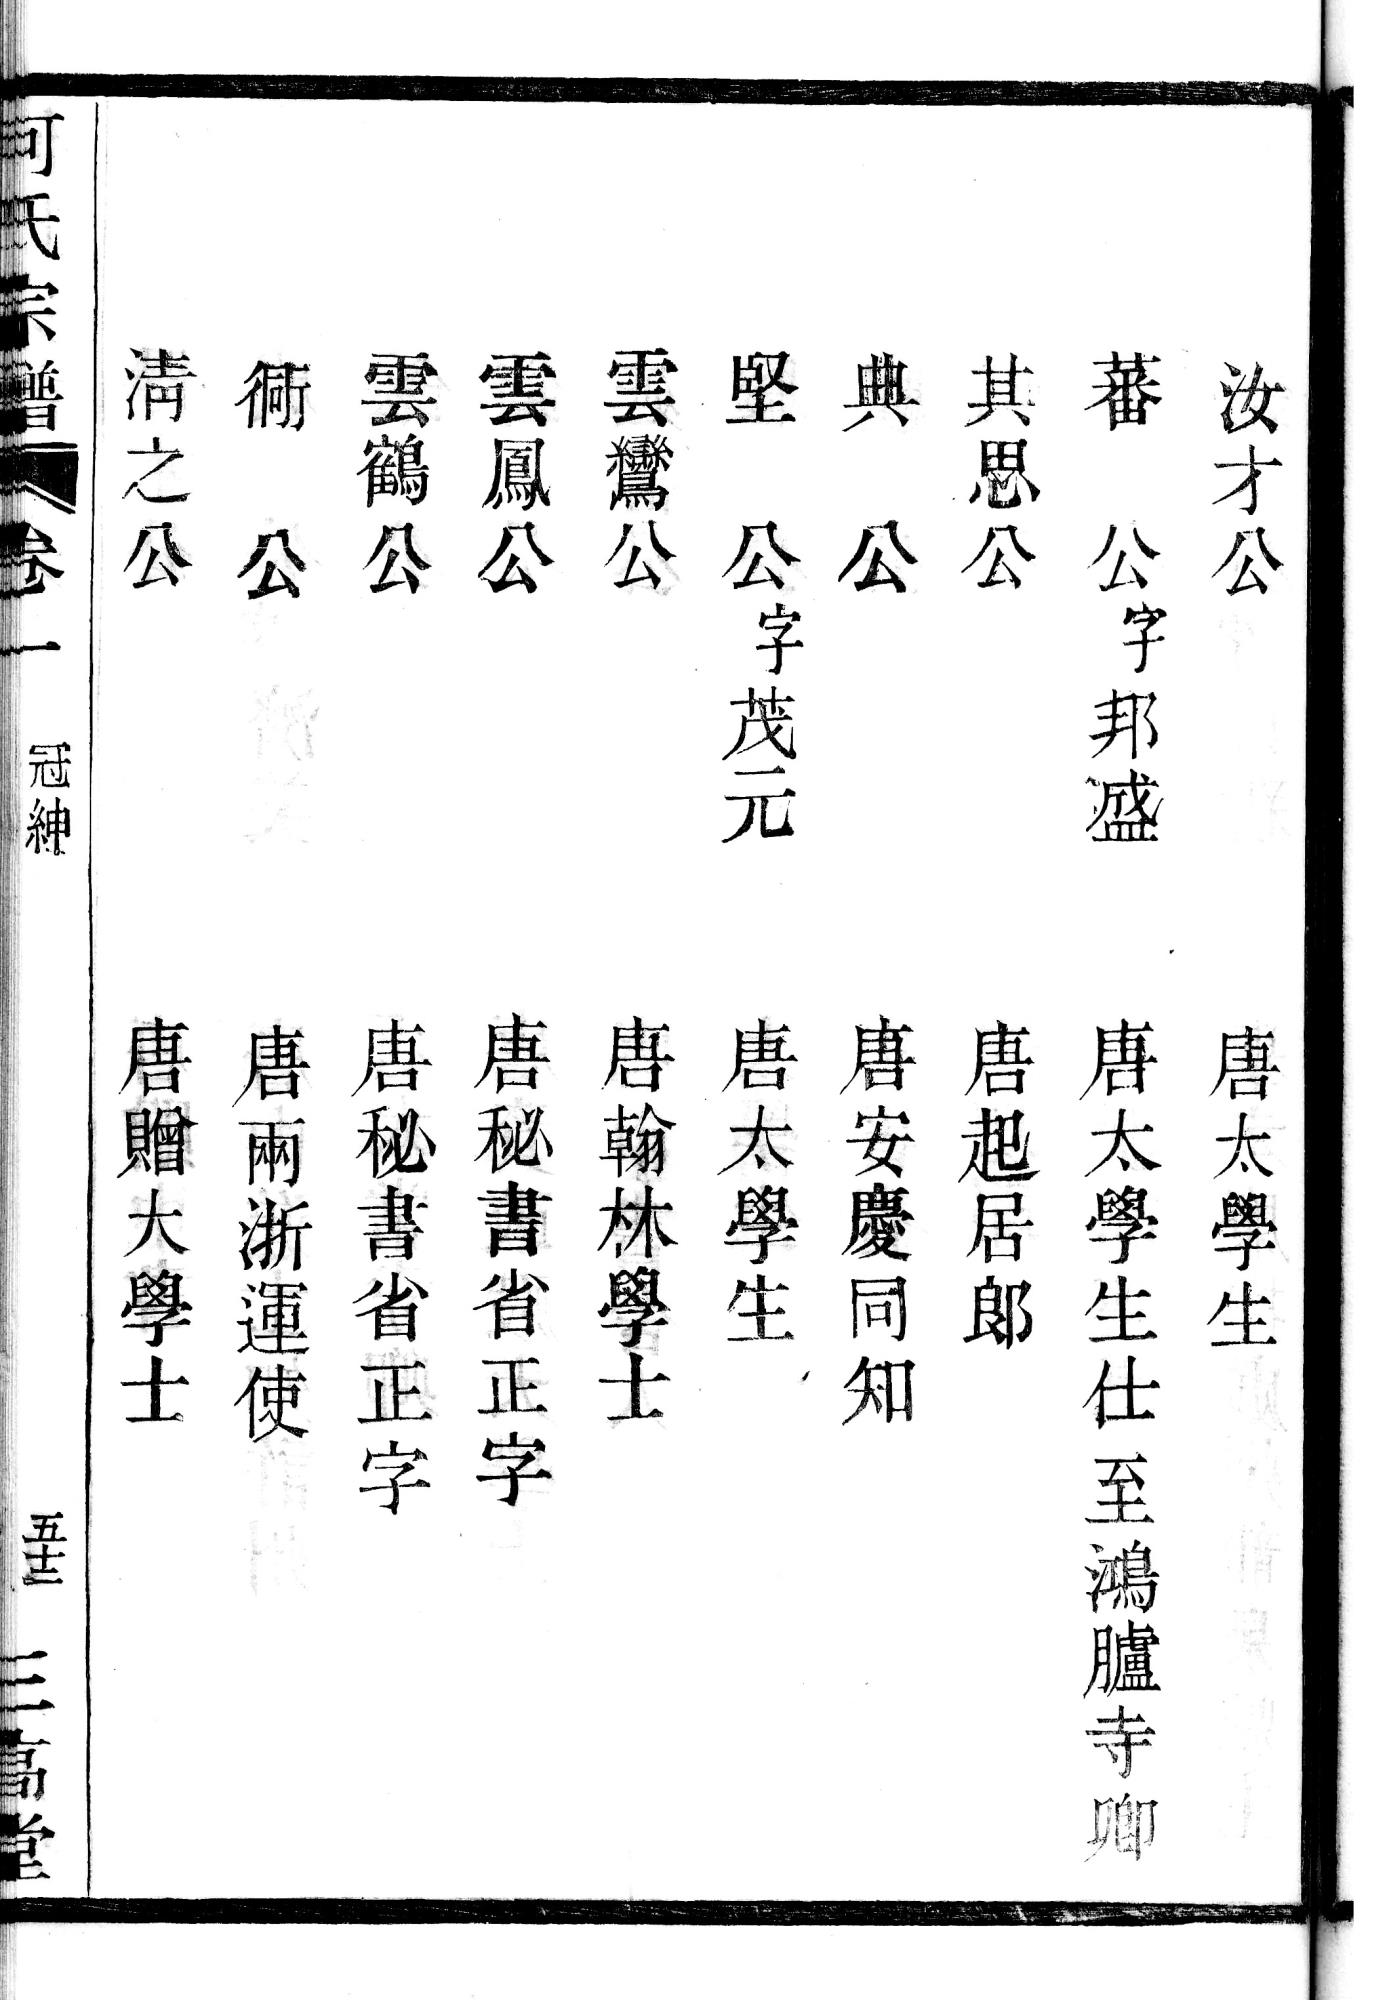 汝才公 唐太學生
蕃公字邦盛 唐太學生仕至鴻臚寺卿
其思公 唐起居郎
典公 唐安慶同知
堅公字茂元 唐太學生
雲鸞公 唐翰林學士
雲鳳公 唐秘書省正字
雲鶴公 唐秘書省正字
公 唐兩浙運使
淸之公 唐贈大學士
何氏宗譜 卷一 冠紳 五十三 三高堂